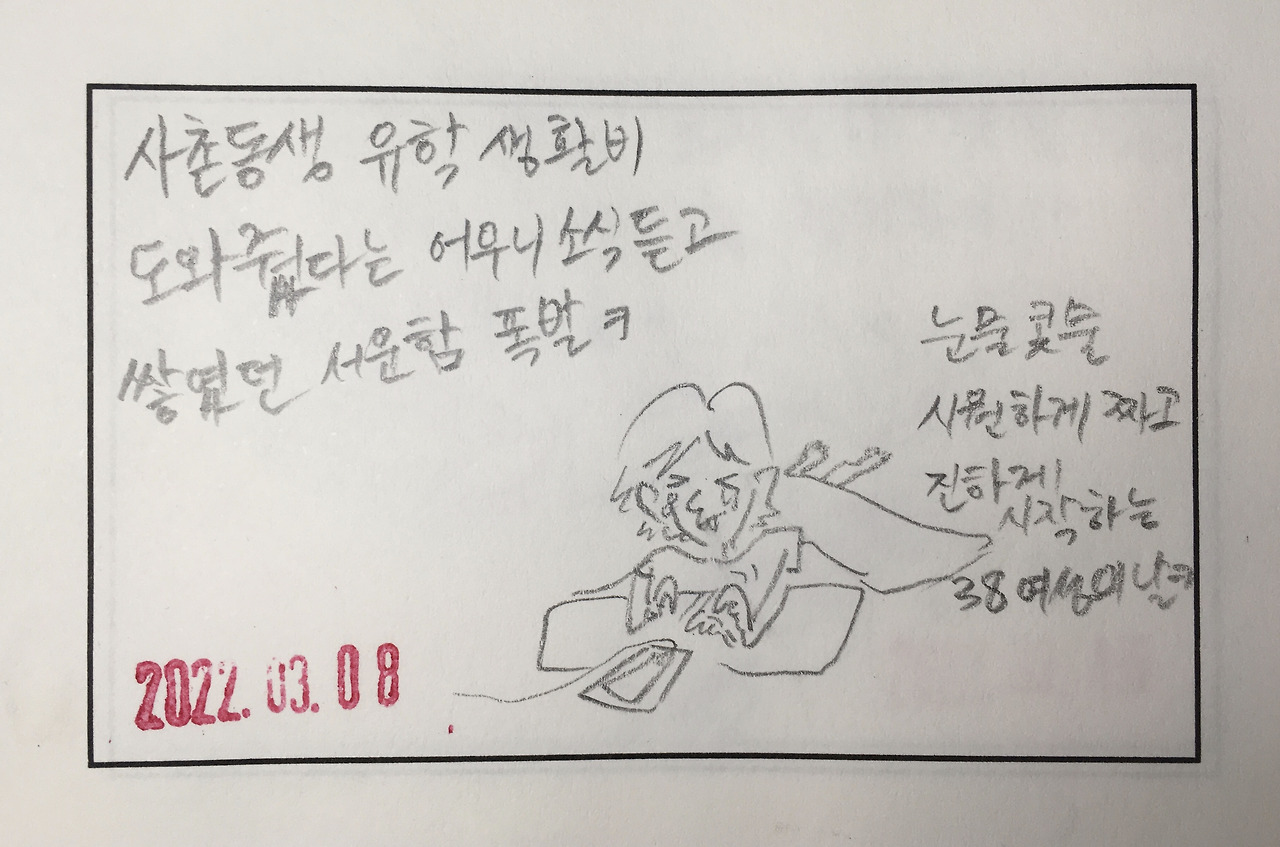 사촌동생 유학 생활비
도와줬다는 어무니 소식 듣고
쌓였던 서운함 폭발 ㅋ
눈물 콧물
시원하게 짜고
진하게
시작하는
38 여성의 날ㅋ
2022.03.08